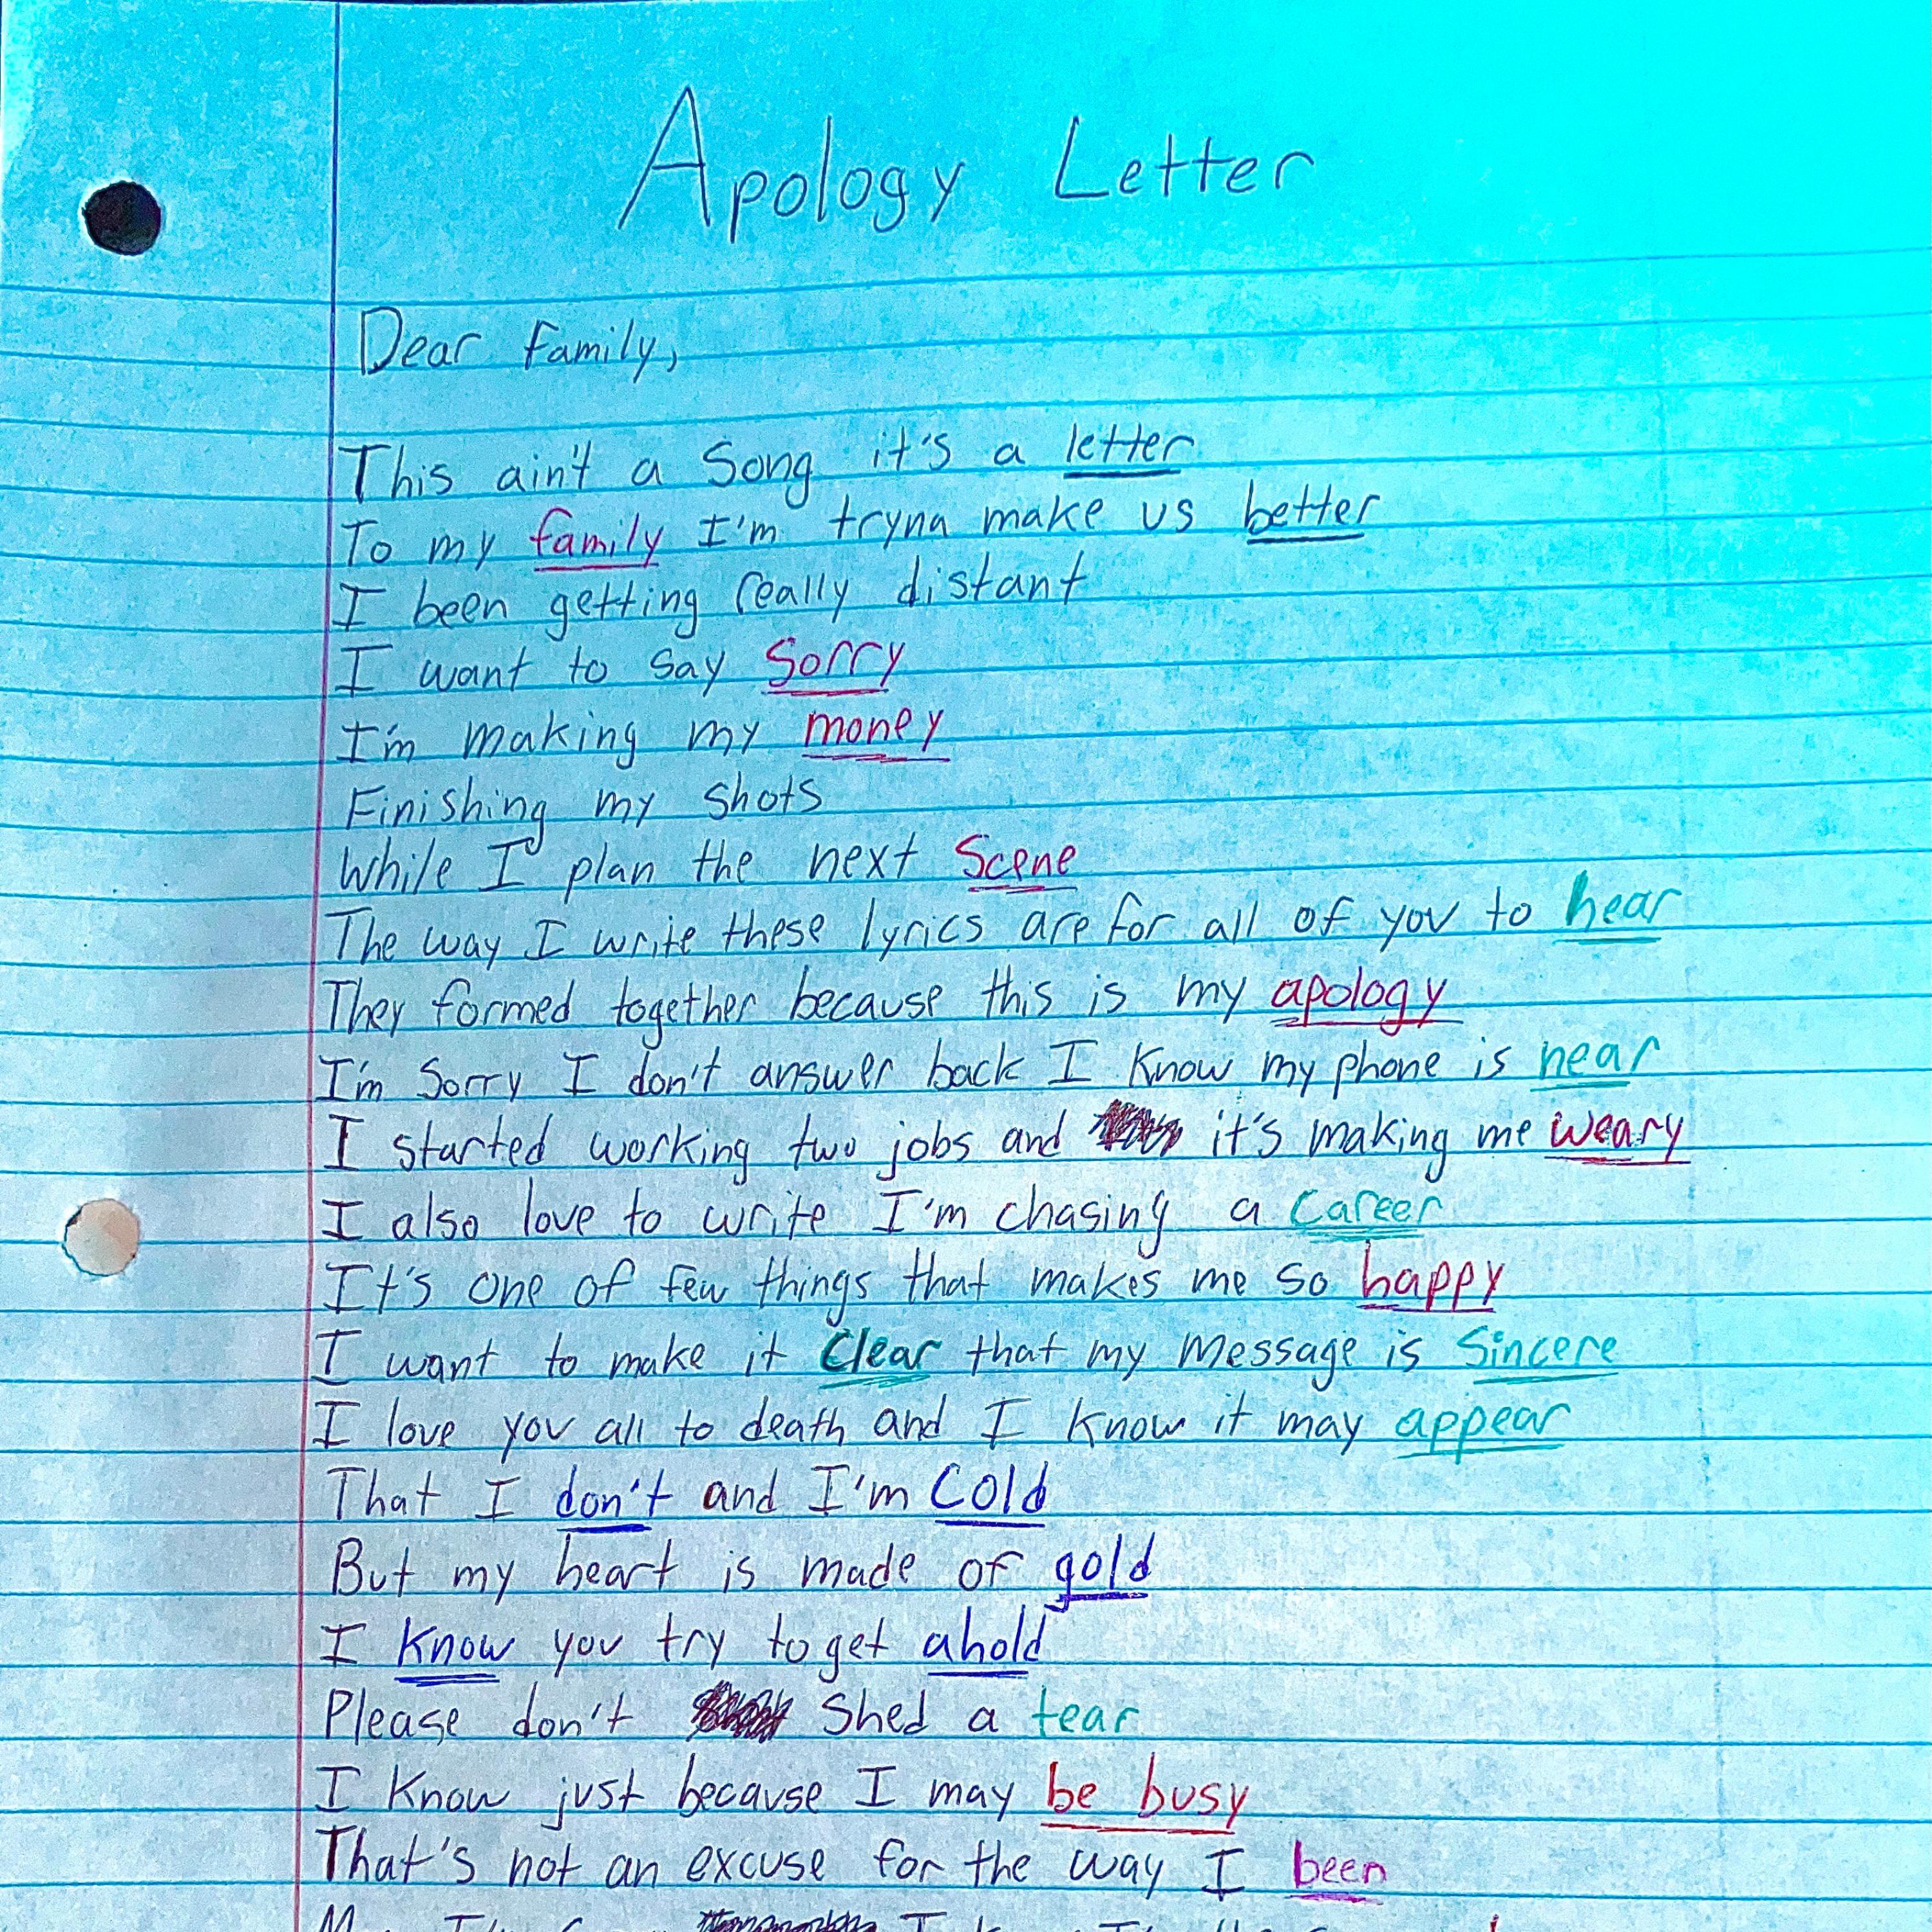 Apology Letter
Dear family,
This ain't a song it's a letter
To my family I'm tryna make us better
I been getting really distant
I want to say sorry
I'm making my money
Finishing my shots
While I plan the next scene
The way I write these lyrics are for all of you to hear
They formed together because this is my apology
I'm sorry I don't answer back I know my phone is near
I started working two jobs and it's making me weary
I also love to write I'm chasing a career
It's one of few things that makes me so happy
I want to make it clear that my message is sincere
I love you all to death and I know it may appear
That I don't and I'm cold
But my heart is made of gold
I know you try to get ahold
Please don't shed a tear
I know just because I may be busy
That's not an excuse for the way I been